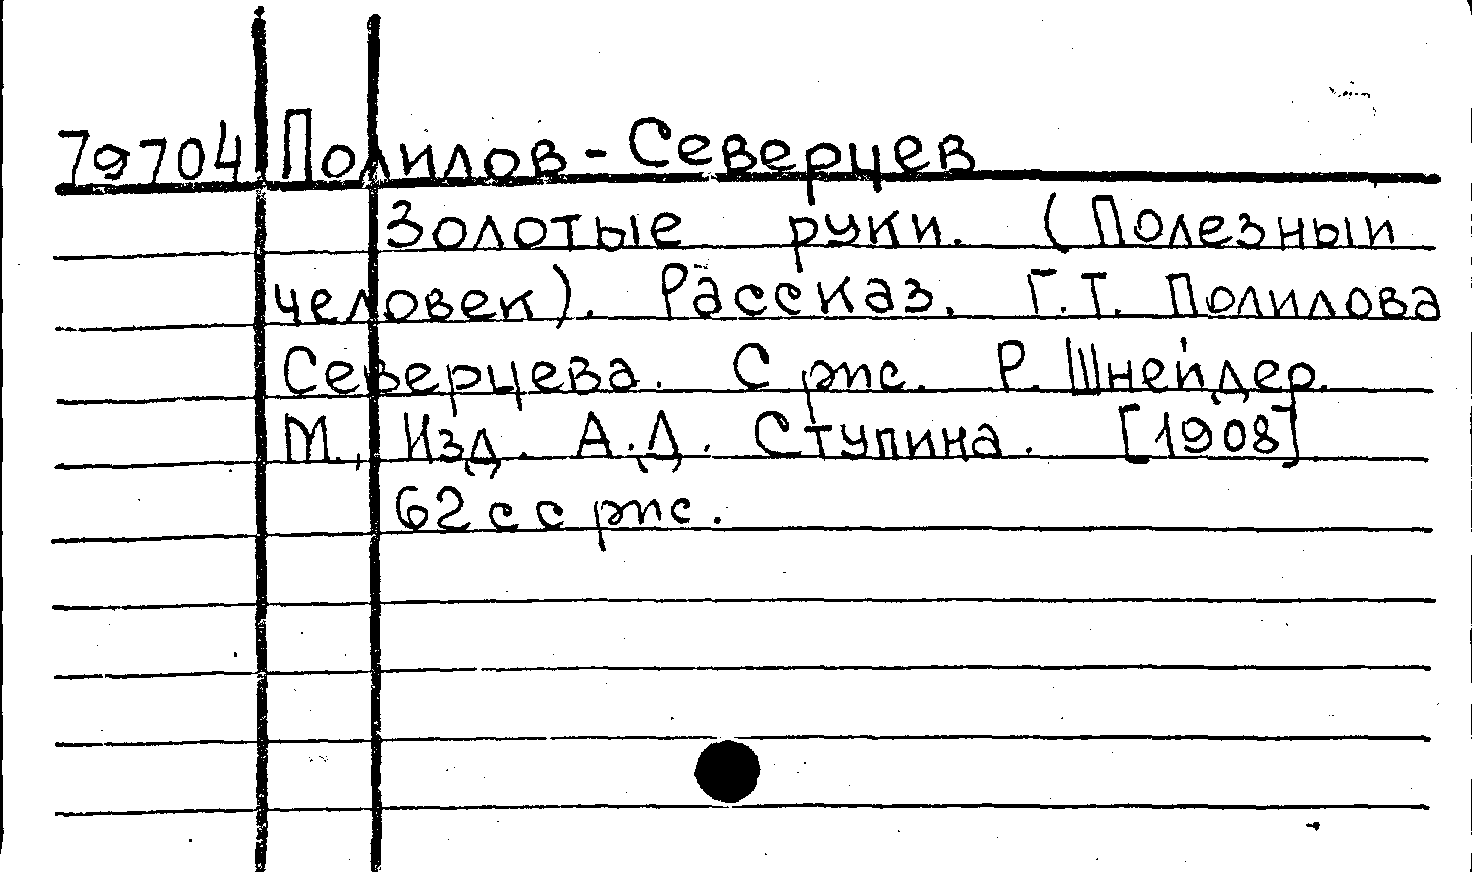 79704 Полилов-Северцев
Золотые руки. (Полезный
человек). Рассказ. Г.Т. Полилова
Северцева. С рис. Р. Шнейдер.
М., Изд. А.Д. Ступина. [1908].
62 с с рис.